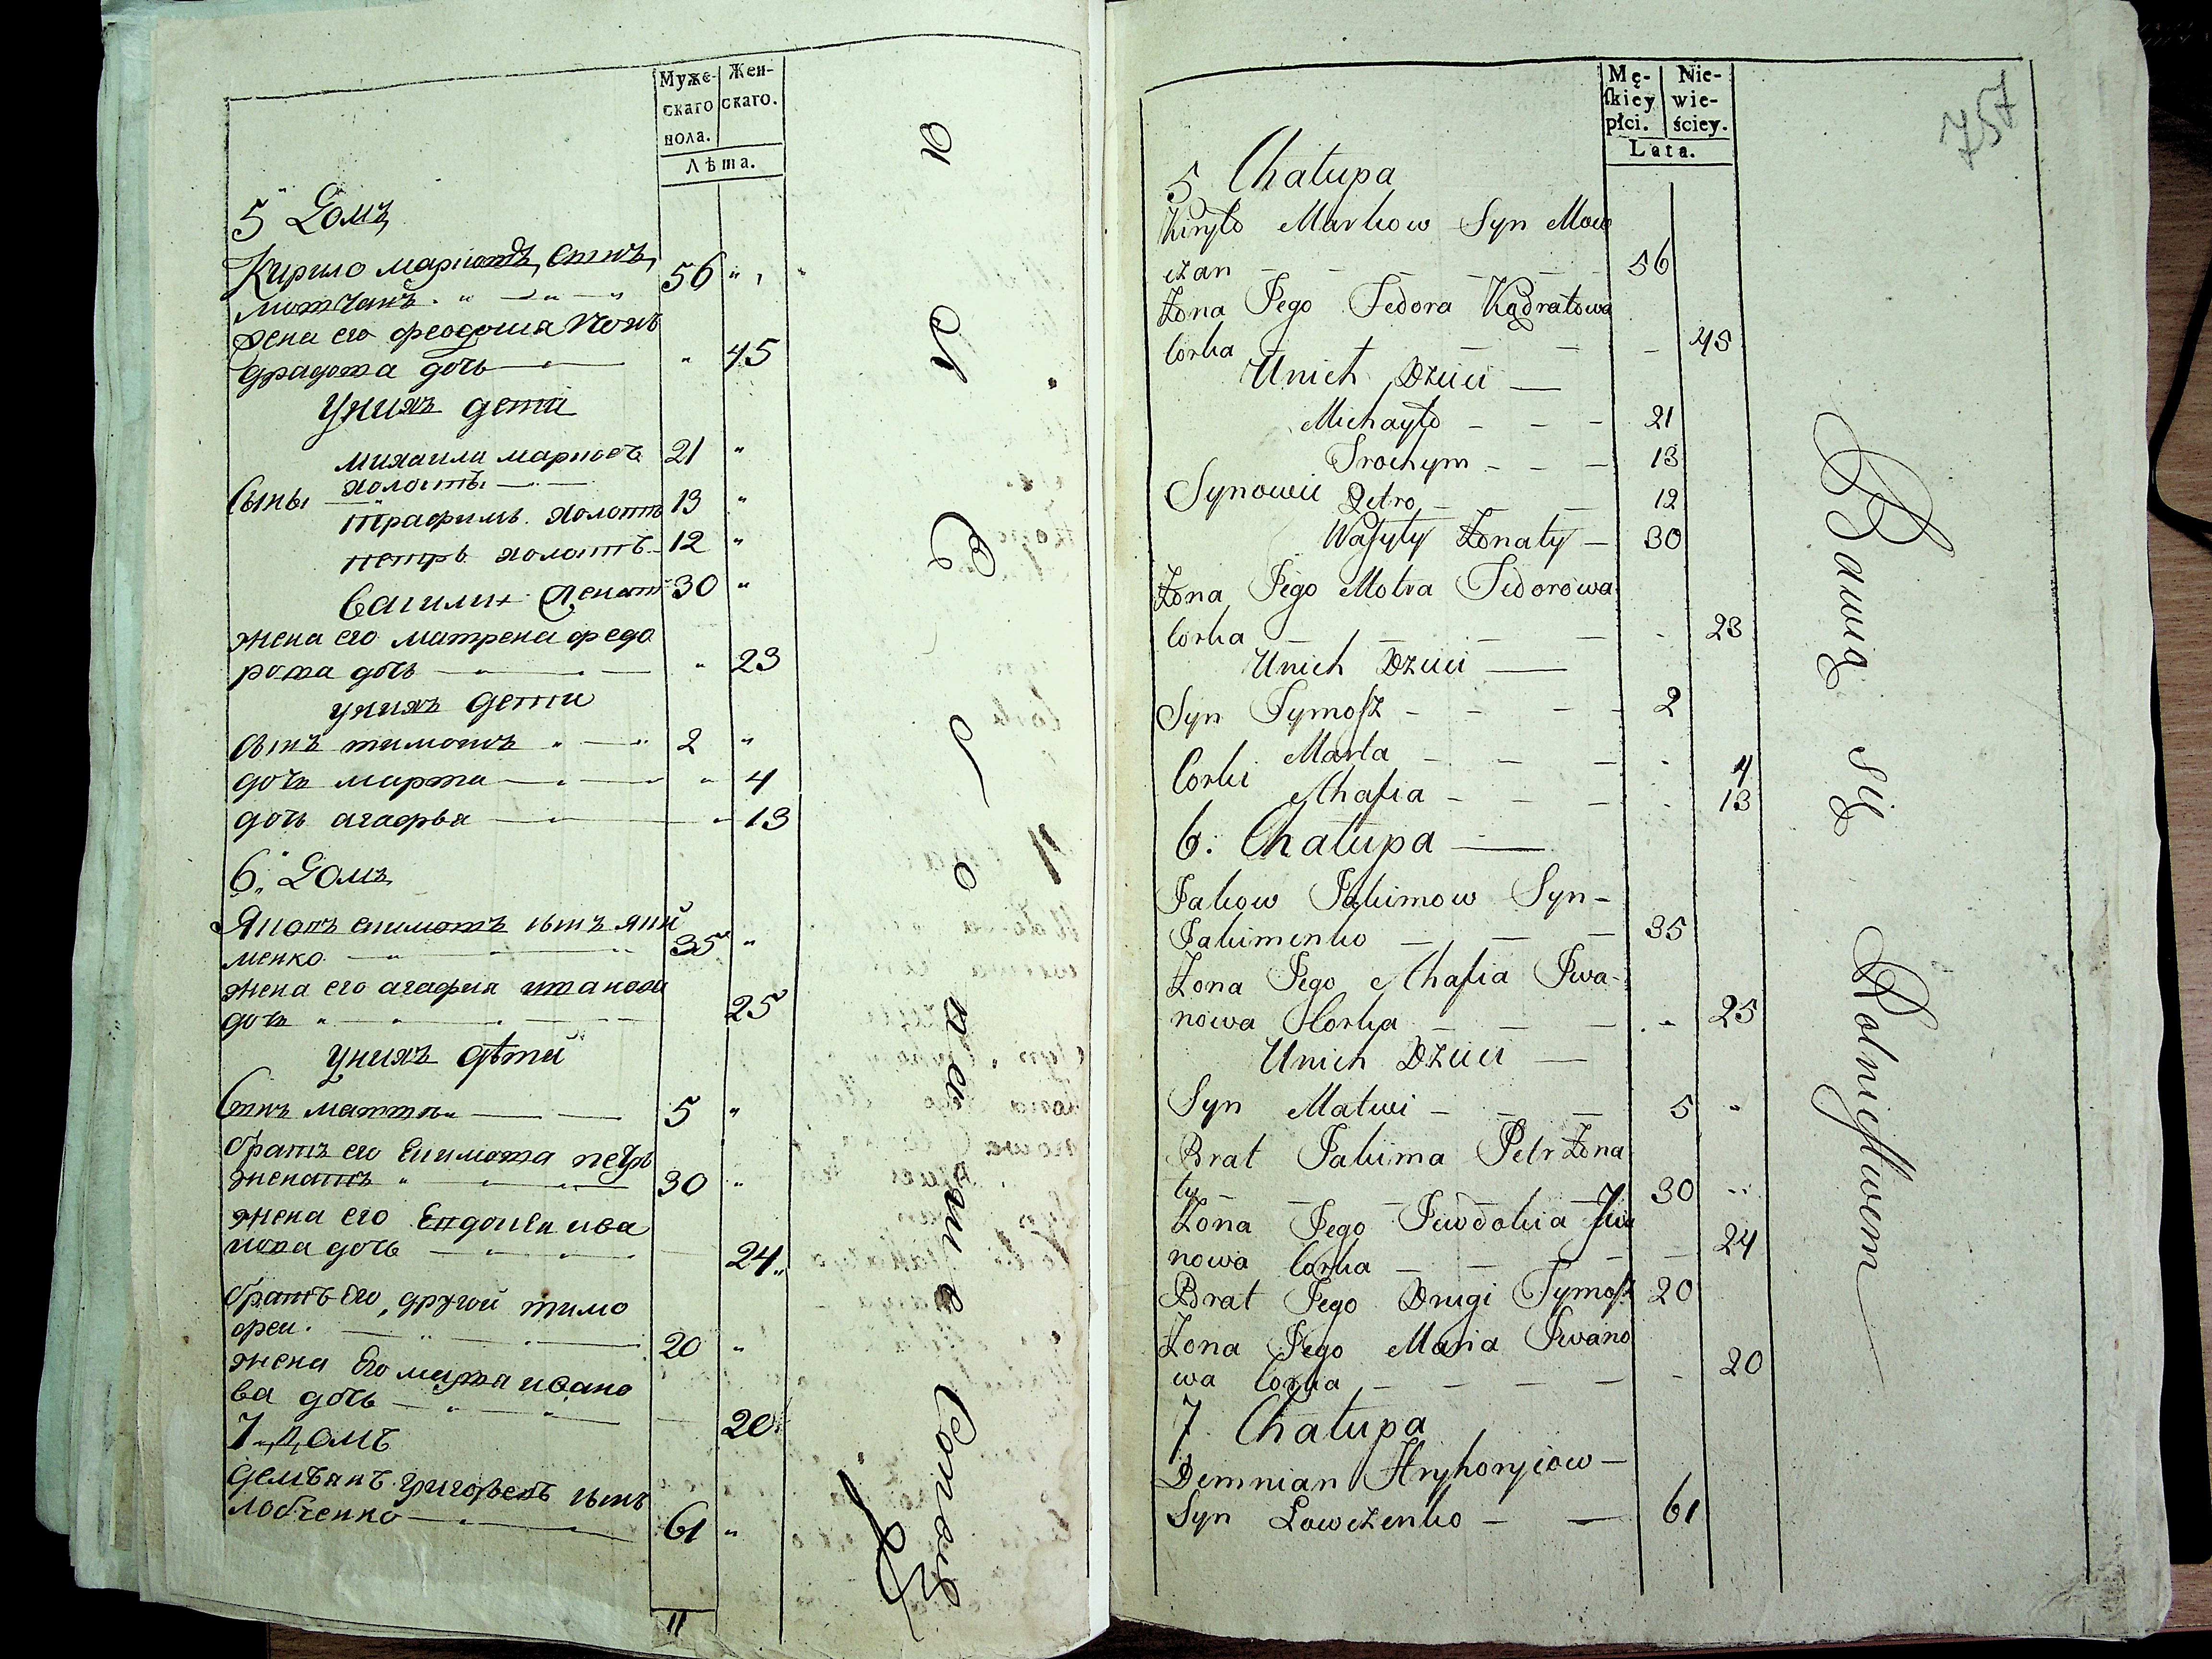 Муже- Жен-
скаго скаго.
пола.
Лѣта.
5 Домъ
Кирило марковъ сынъ 56
мовчанъ
жена его феодосия кон
дратова дочь 45
уних дети
михаила марковъ 21
холостъ
Сыны
трафимъ холостъ 13
петръ холостъ 12
Василий женатъ 30
жена его матрена федо
рова дочь 23
уних дети
сынъ тимошъ 2
дочь марта 4
дочь агафья 13
6 Домъ
Яковъ екимовъ сынъ яки
менко 35
жена его агафия иванова
дочь 25
уних дѣти
Сынъ матвѣй 5
братъ его екимова петръ
женатъ 30
жена его евдокия ива
нова дочь 24
братъ его другой тимо
фей 20
жена его марья ивано
ва дочь 20
7 домъ
демьянъ григорьевъ сынъ
ловченко 61
11
Mę- Nie-
ſkiey wie-
płci. ściey.
Lata.
757
5 Chałupa
Kiryło Markow Syn Mow
czan 56
Żona Jego Fedora Kądratowa
Corka 45
Unich Dzieci
Michayło 21
Trochym 13
Synowie Petro 12
Waſyly Żonaty 30
Żona Jego Motra Fedorowa
Corka 23
Unich Dzieci
Syn Tymoſz 2
Corki Marta 4
Ahafia 13
6. Chałupa
Jakow Jakimow Syn
Jakimenko 35
Żona Jego Ahafia Iwa-
nowa Corka 25
Unich Dzieci
Syn Matwi 5
Brat Jakima Petr Żona
ty 30
Żona Jego Jewdokia Iwa
nowa Corka 24
Brat Jego Drugi Tymoſz 20
Żona Jego Maria Iwano
wa Corka 20
7. Chałupa
Demnian Hryhoryiow
Syn Łowczenko 61
Bawią się Rolnictwem